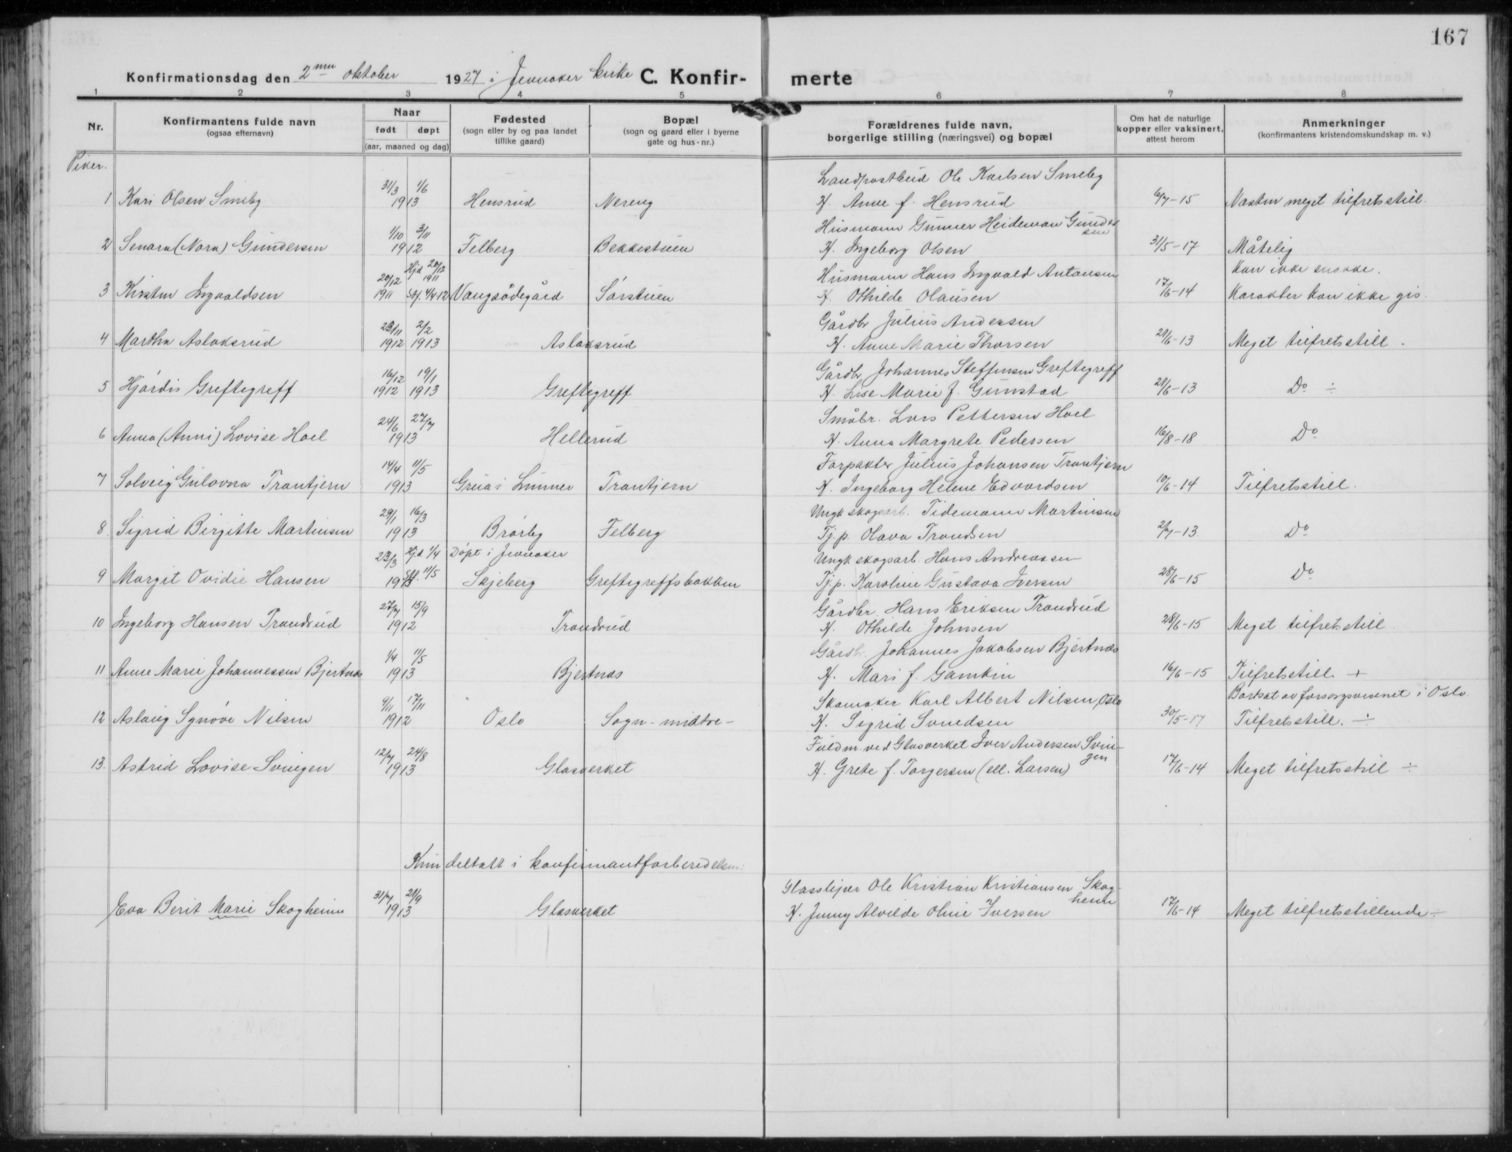 167
Konfirmationsdag den 2nen oktober 1927 i Jevnaker kirke C. Konfir- merte
1 2 3 4 5 6 7 8
Nr. Konfirmantens fulde navn (ogsaa efternavn) Naar født døpt (aar, maaned og dag) Fødested (sogn eller by og paa landet tillike gaard) Bopæl (sogn og gaard eller i byerne gate og hus-nr.) Forældrenes fulde navn, borgerlige stilling (næringsvei) og bopæl Om hat de naturlige kopper eller vaksinert, attest herom Anmerkninger (konfirmantens kristendomskundskap m. v.)
Piker.
31/3 1/6 Landpostbud Ole Karlsen Smeby
1 Kari Olsen Smeby 1913 Hensrud Nereng H. Anne f. Hensrud 6/7-15 Næsten meget tilfretsstill.
1/10 3/11 Husmann Gunner Heideman Gundersen
2 Senara (Nora) Gundersen 1912 Felberg Bekkestuen H. Ingeborg Olsen 31/5-17 Måtelig
20/12 Hjd 20/12 1911 Husmann Hans Ingvald Antonsen kan ikke snakke.
3 Kirsten Ingvaldsen 1911 Stf. 4/4 12 Vangsødegård Sørstuen H. Othilde Olausen 17/6-14 Karakter kan ikke gis.
23/11 2/2 Gårdbr Julius Andersen
4 Martha Aslaksrud 1912 1913 Aslaksrud H. Anne Marie Thorsen 20/6-13 Meget tilfretsstill.
16/12 19/1 Gårdbr. Johannes Steffensen Greftegreff
5 Hjørdis Greftegreff 1912 1913 Greftegreff H. Lise Marie f. Gunstad 20/6-13 Do ÷
24/6 27/7 Småbr. Lars Pettersen Hoel
6 Anna (Anni) Lovise Hoel 1913 Hellerud H. Anna Margrete Pedersen 16/8-18 Do
14/4 11/5 Forpakter Julius Johansen Trantjern
7 Solveig Gulovna Trantjern 1913 Grua i Lunner Trantjern H. Ingeborg Helene Edvardsen 10/6-14 Tilfretsstill.
29/1 16/3 Ungk skogsarb. Tidemann Martinsen
8 Sigrid Birgitte Martinsen 1913 Brørby Felberg Tj.p. Olava Trondsen 2/7-13 Do
23/3 Hjd 1/4 Døpt i Jevnaker Ungk skogsarb. Hans Andreassen
9 Margit Ovidie Hansen 1913 Stf. 11/5 Skjeberg Greftegreffsbakken Tj.p. Karoline Gustava Iversen 28/6-15 Do
27/7 15/9 Gårdbr. Hans Eriksen Trondrud
10 Ingeborg Hansen Trondrud 1912 Trondrud H. Othilde Johnsen 28/6-15 Meget tilfretsstill
1/4 11/5 Gårdb. Johannes Jakobsen Bjertnæs
11 Anne Marie Johannessen Bjertnæs 1913 Bjertnæs H. Mari f Gamkin 16/6-15 Tilfretsstill +
9/11 17/11 Skomaker Karl Albert Nilsen, Oslo Bortsat av forsorgsvesenet i Oslo
12 Aslaug Synøve Nilsen 1912 Oslo Sogn-midtre- H. Sigrid Svendsen 30/5-17 Tilfretsstill. ÷
12/7 24/8 Fuldm. ved Glasverket Iver Andersen Svingen
13. Astrid Lovise Svingen 1913 Glasverket H. Grete f. Torgersen (ell. Larsen) 17/6-14 Meget tilfretsstill ÷
Kun deltatt i konfirmantforberedelsen:
31/7 28/9 Glassliper Ole Kristian Kristiansen Skogheim
Eva Berit Marie Skogheim 1913 Glasverket H. Jenny Alvilde Oline Iversen 17/6-14 Meget tilfretsstillende ÷